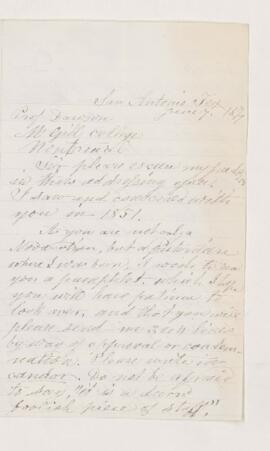 San Antonio Tex
June 7. 187
Prof Dawson
McGill college
Montreal
Sir please excuse my
in thus addressing you.
I saw and conversed with
you in 1851.
As you are not only a
Novascotian, but a
where I was born. I
you a pamphlet, which I hope
you will have patience to
look over, and that you will
please send me such lines
by way of approval or condem-
nation. Please write in
candor. Do not be afraid
to say, "it is a
foolish piece of stuff",